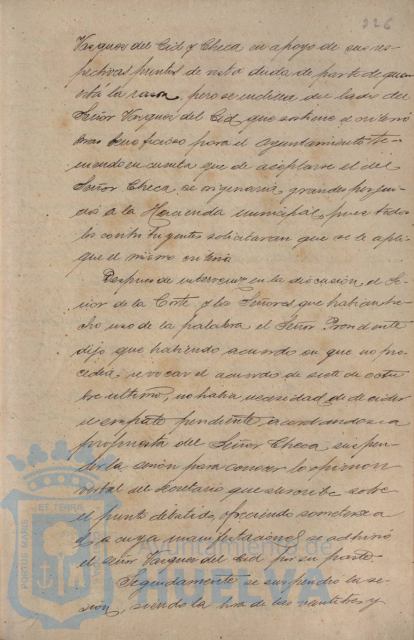 226
Vazquez del Cid y Checa en apoyo de sus res-
pectivos puntos de vista duda de parte de quien
está la razon, pero se inclina del lado del
Señor Vazquez del Cid, que sostiene el criterio
mas beneficioso para el Ayuntamiento te-
niendo en cuenta que de adoptarse el del
Señor Checa se originaria grandes perjui-
cios á la Hacienda municipal, pues todos
los contribuyentes solicitaran que se le apli-
que el mismo criterio.
Despues de intervenir en la discusion el Se-
ñor de la Corte y los Señores que habian he-
cho uso de la palabra el Señor Presidente
dijo que habiendo acuerdo en que no pro-
cedia revocar el acuerdo de siete de octu-
bre ultimo, no habia necesidad de decidir
el empate pendiente, acordandose a
propuesta del Señor Checa suspen-
der la sesion para conocer la opinion
verbal del Secretario que suscribe sobre
el punto debatido, ofreciendo someterse a
ella, a cuya manifestacion se adhirió
el señor Vazquez del Cid por su parte.
Seguidamente se suspendio la se-
sion, siendo la hora de las veintitres y
PORTUS MARIS
ET TERRAE
Ayuntamiento de
HUELVA